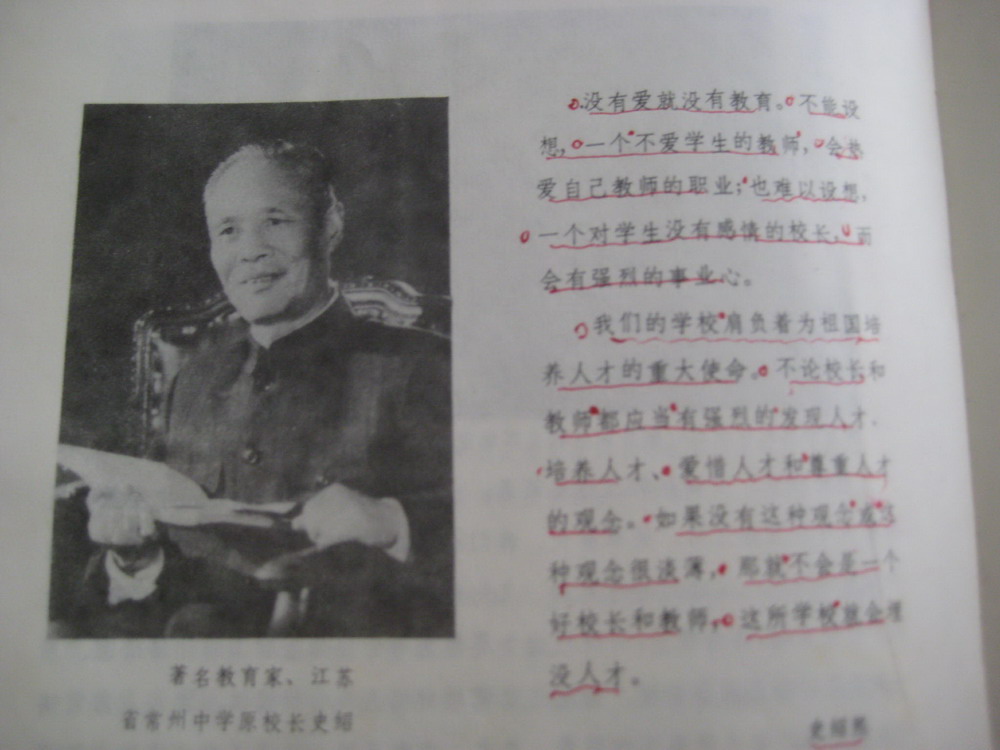 没有爱就没有教育。不能设
想,一个不爱学生的教师,会热
爱自己教师的职业;也难以设想,
一个对学生没有感情的校长,而
会有强烈的事业心。
我们的学校肩负着为祖国培
养人才的重大使命。不论校长和
教师都应当有强烈的发现人才、
培养人才、爱惜人才和尊重人才
的观念。如果没有这种观念或这
种观念很淡薄,那就不会是一个
好校长和教师,这所学校就会埋
没人才。
史绍熙
著名教育家、江苏
省常州中学原校长史绍